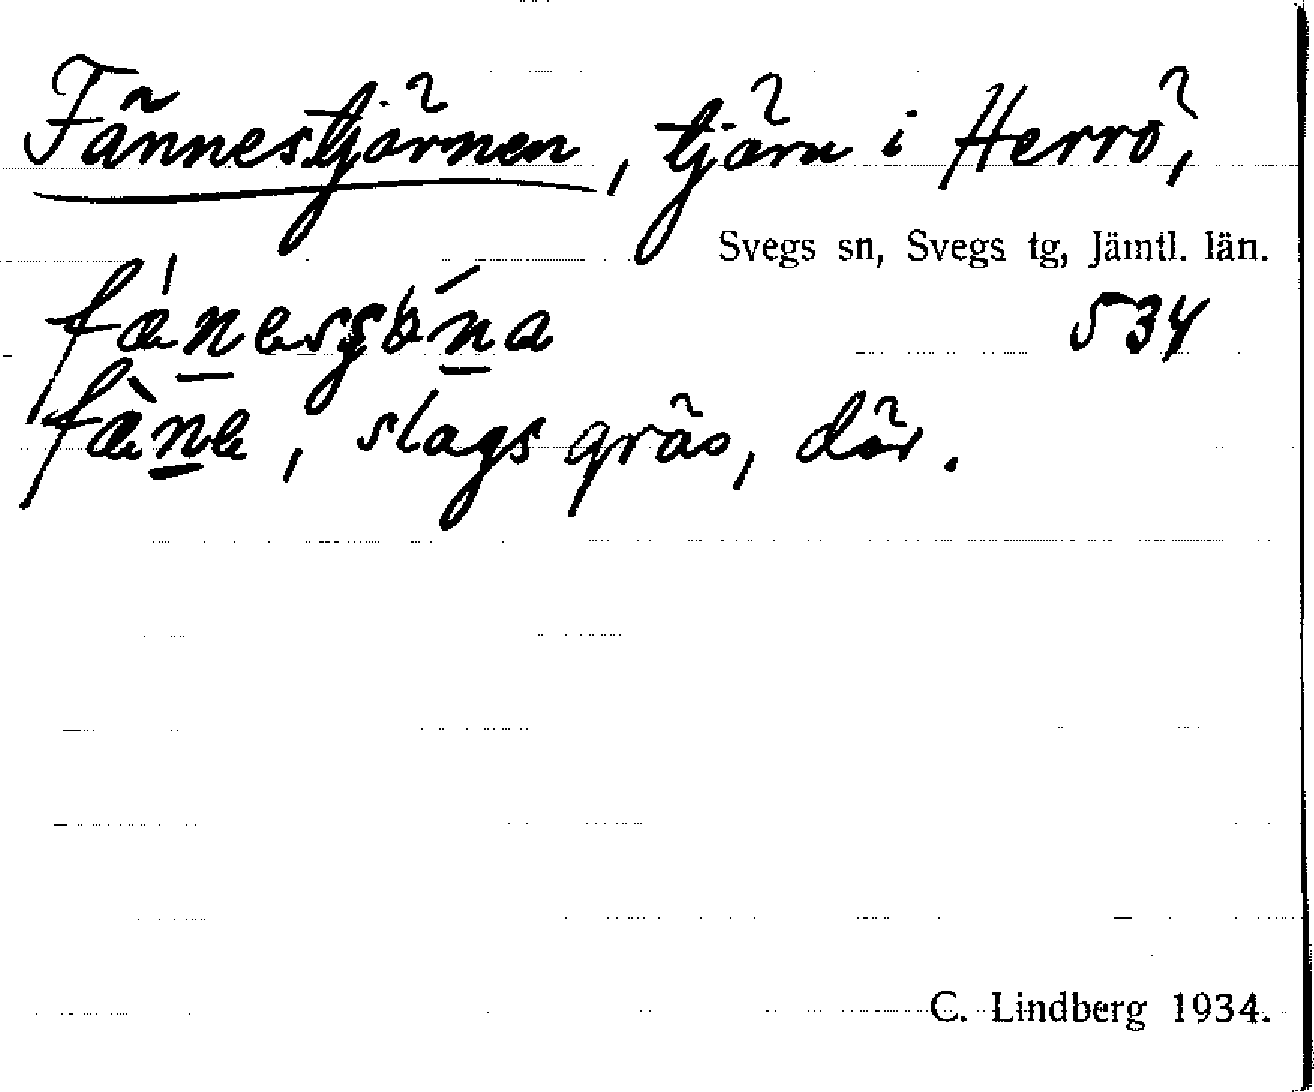 Fännestjärnen, tjärn i Herrö,
Svegs sn, Svegs tg, Jämtl. län.
534
fæ̀ne, slags gräs, där.
C. Lindberg 1934.